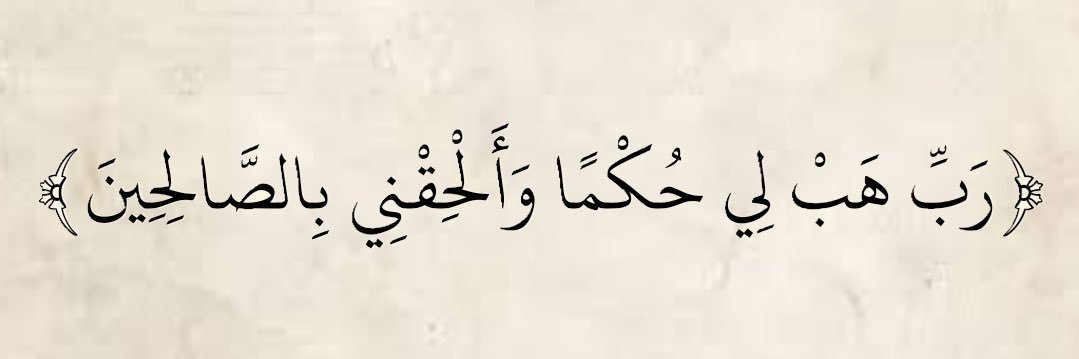 ﴿رَبِّ هَبْ لِي حُكْمًا وَأَلْحِقْنِي بِالصَّالِحِينَ﴾